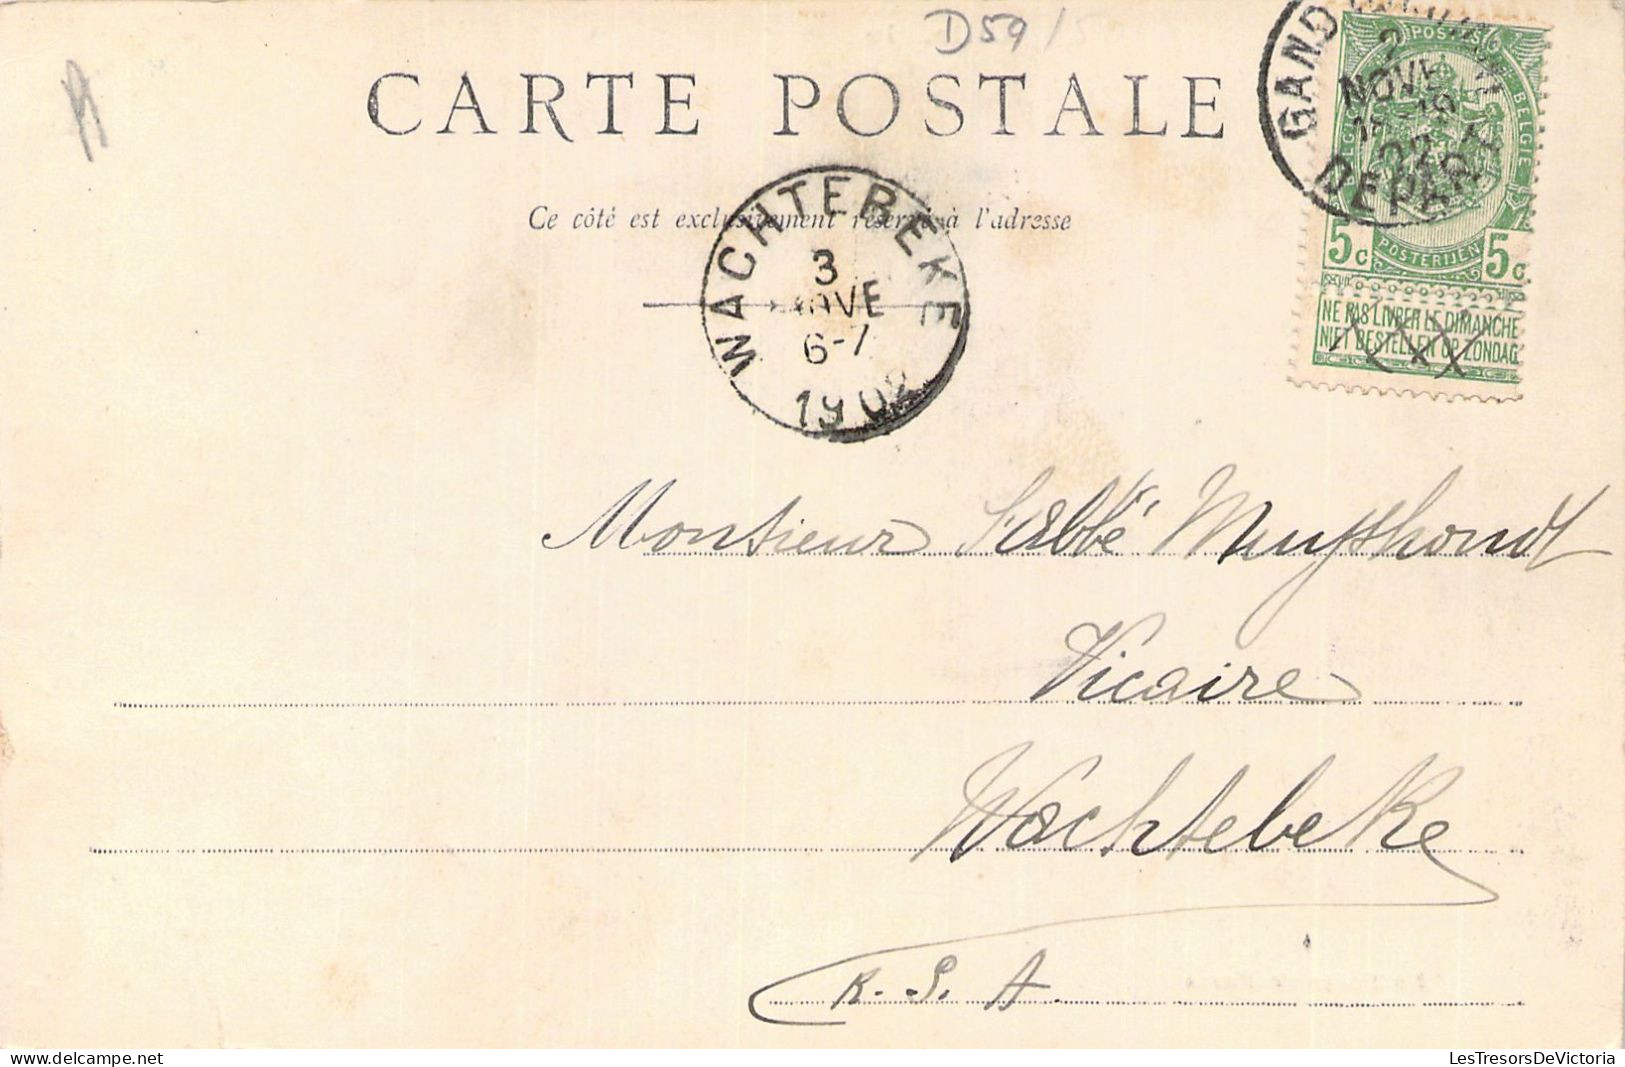 D59/5
CARTE POSTALE
Ce côté est exclusivement réservé à l'adresse
GAND
2
NOVE
DEPART
POSTES
BELGIE
POSTERIJEN
5c 5c
NE PAS LIVRER LE DIMANCHE
NIET BESTELLEN OP ZONDAG
WACHTEBEKE
3
NOVE
6-7
1902
Monsieur l'Abbé Muyshondt
Vicaire
Wachtebeke
R. S. A.
LesTresorsDeVictoria